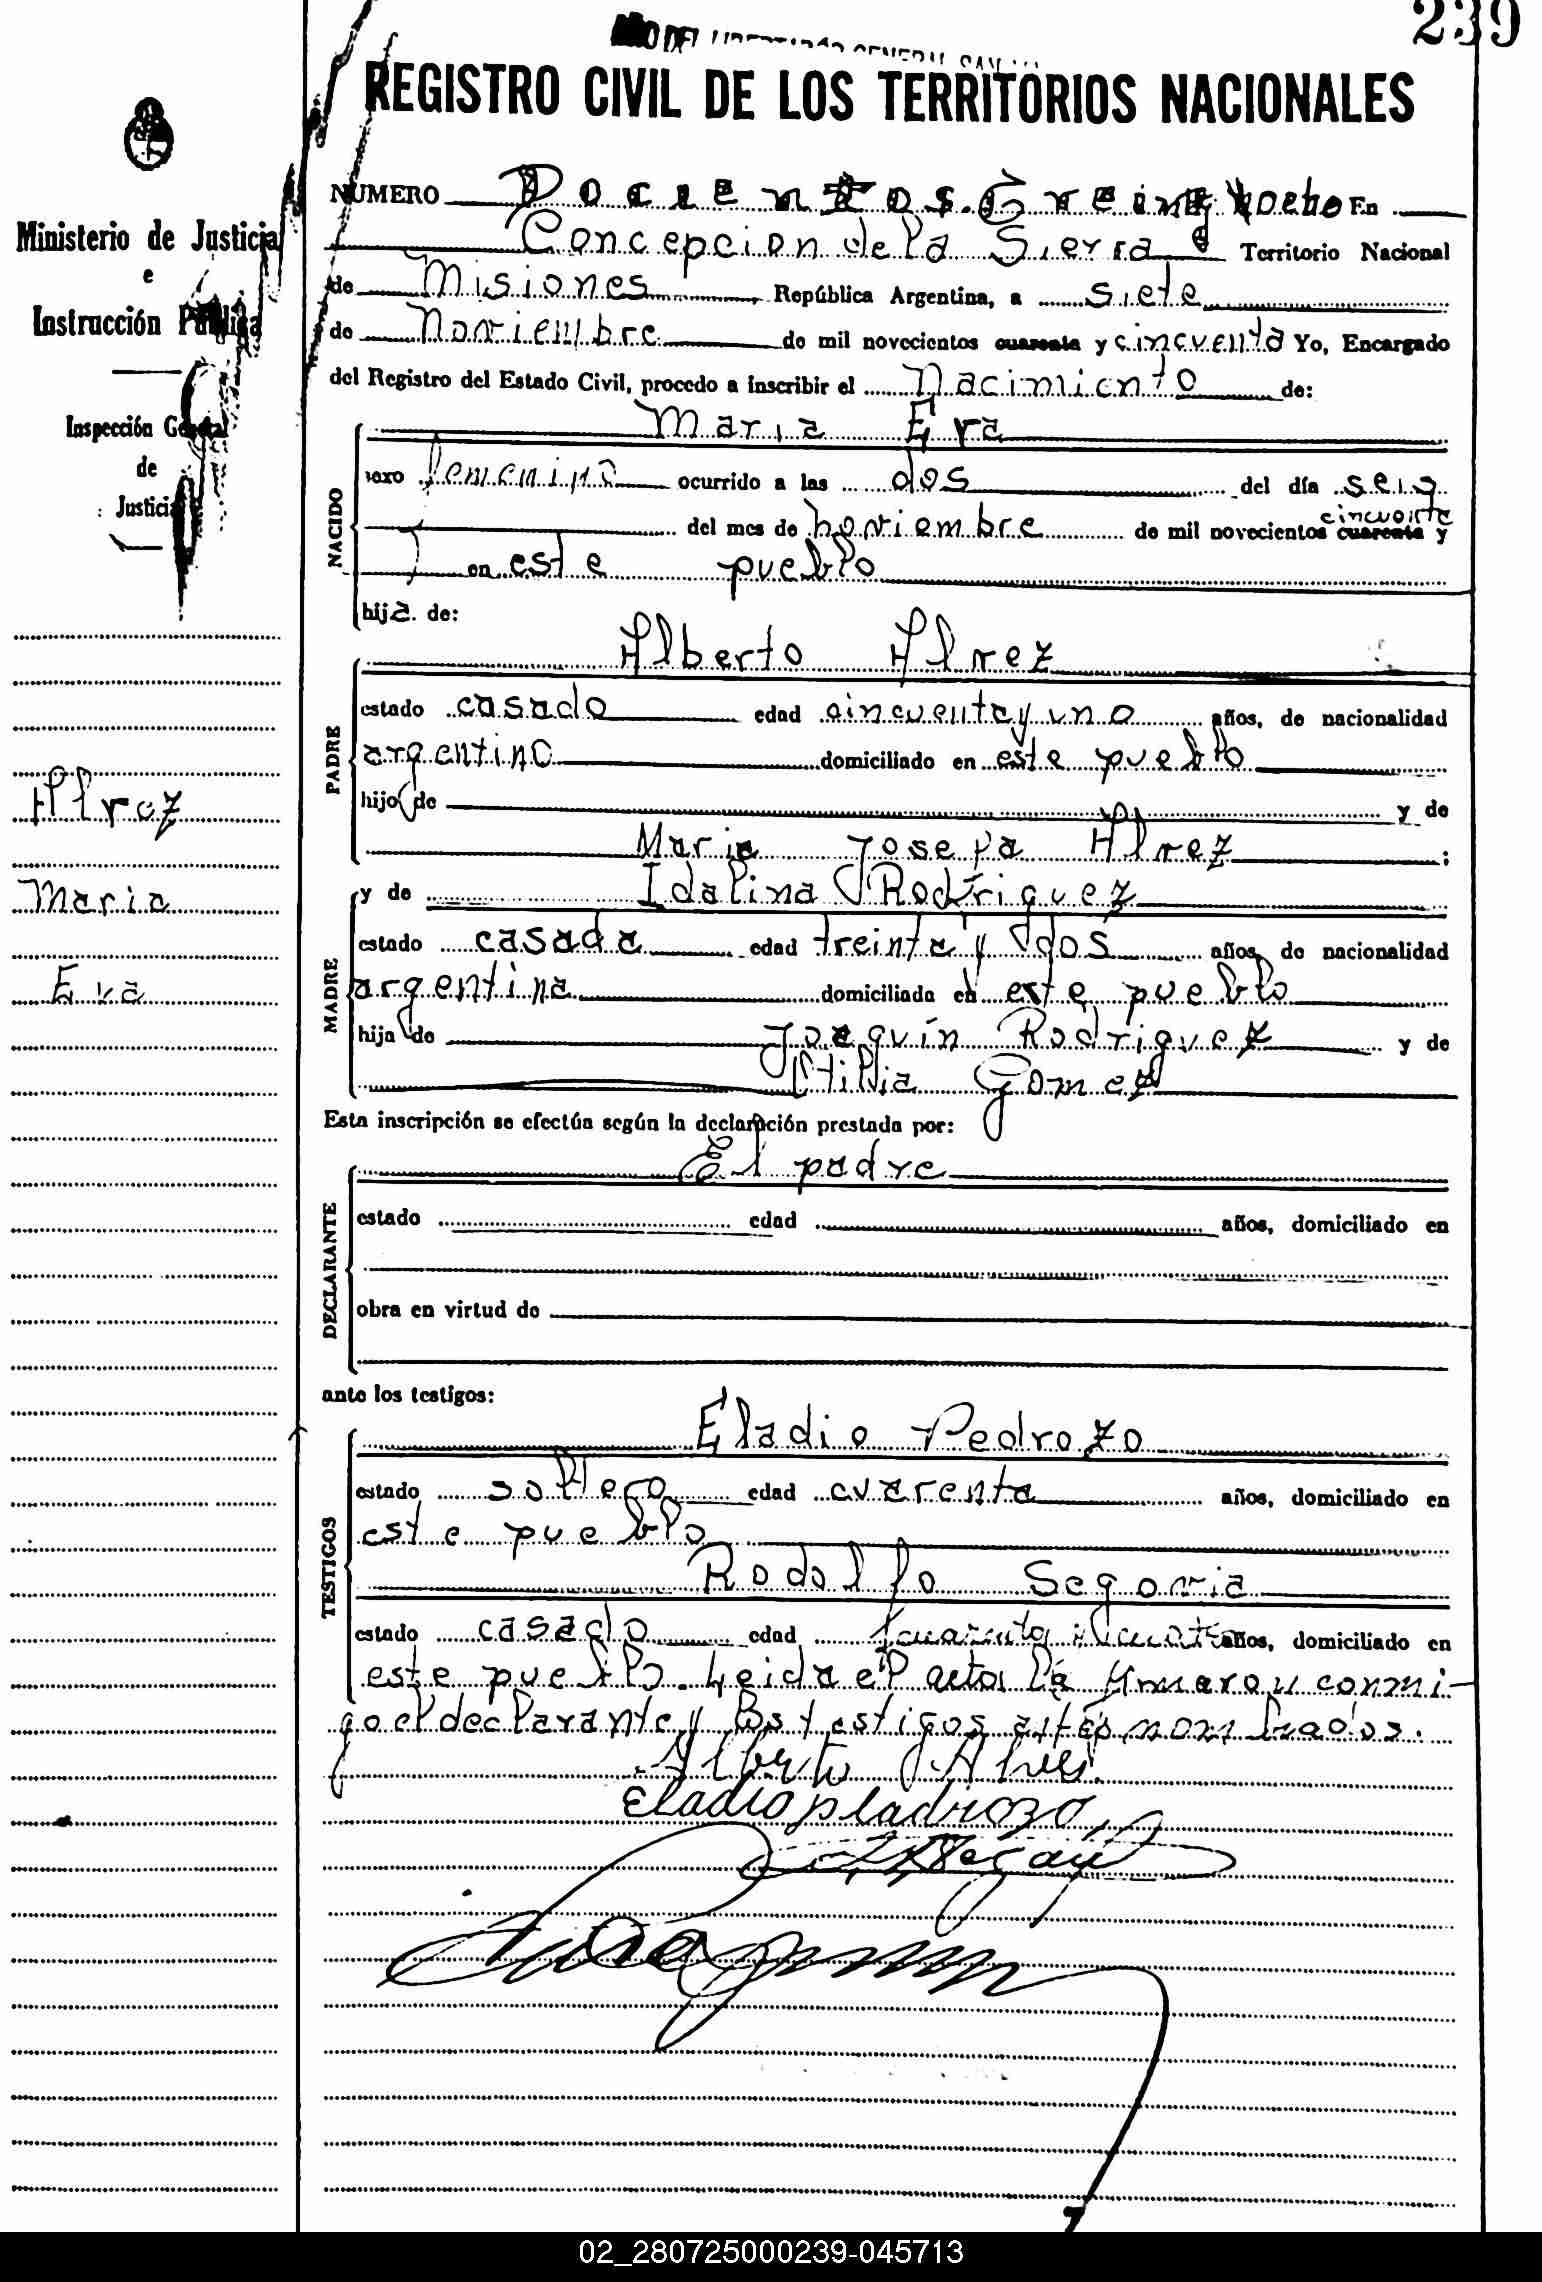 239
REGISTRO CIVIL DE LOS TERRITORIOS NACIONALES
Ministerio de Justicia
e
Instrucción Pública
Inspección General
de
Justicia
Alvez
Maria
Eva
NUMERO Docientos Treinta y ocho En
Concepcion de la Sierra Territorio Nacional
de Misiones República Argentina, a siete
de Noviembre de mil novecientos cuarenta y cincuenta Yo, Encargado
del Registro del Estado Civil, procedo a inscribir el Nacimiento de:
NACIDO
Maria Eva
sexo femenino ocurrido a las dos del día seis
cincuenta
del mes de noviembre de mil novecientos cuarenta y
en este pueblo
hija de:
PADRE
Alberto Alvez
estado casado edad cincuenta y uno años, de nacionalidad
argentino domiciliado en este pueblo
hijo de y de
Maria Josefa Alvez ;
MADRE
y de Idalina Rodriguez
estado casada edad treinta y dos años, de nacionalidad
argentina domiciliada en este pueblo
hija de Joaquín Rodriguez y de
Gomez
Esta inscripción se efectúa según la declaración prestada por:
DECLARANTE
El padre
estado edad años, domiciliado en
obra en virtud de
ante los testigos:
TESTIGOS
Eladio Pedrozo
estado soltero edad cuarenta años, domiciliado en
este pueblo
Rodolfo Segovia
estado casado edad cuarenta y cuatro años, domiciliado en
este pueblo. Leida el acta, la firmaron conmi-
go el declarante y los testigos antes nombrados.
Alberto Alves
Eladio
02_280725000239-045713